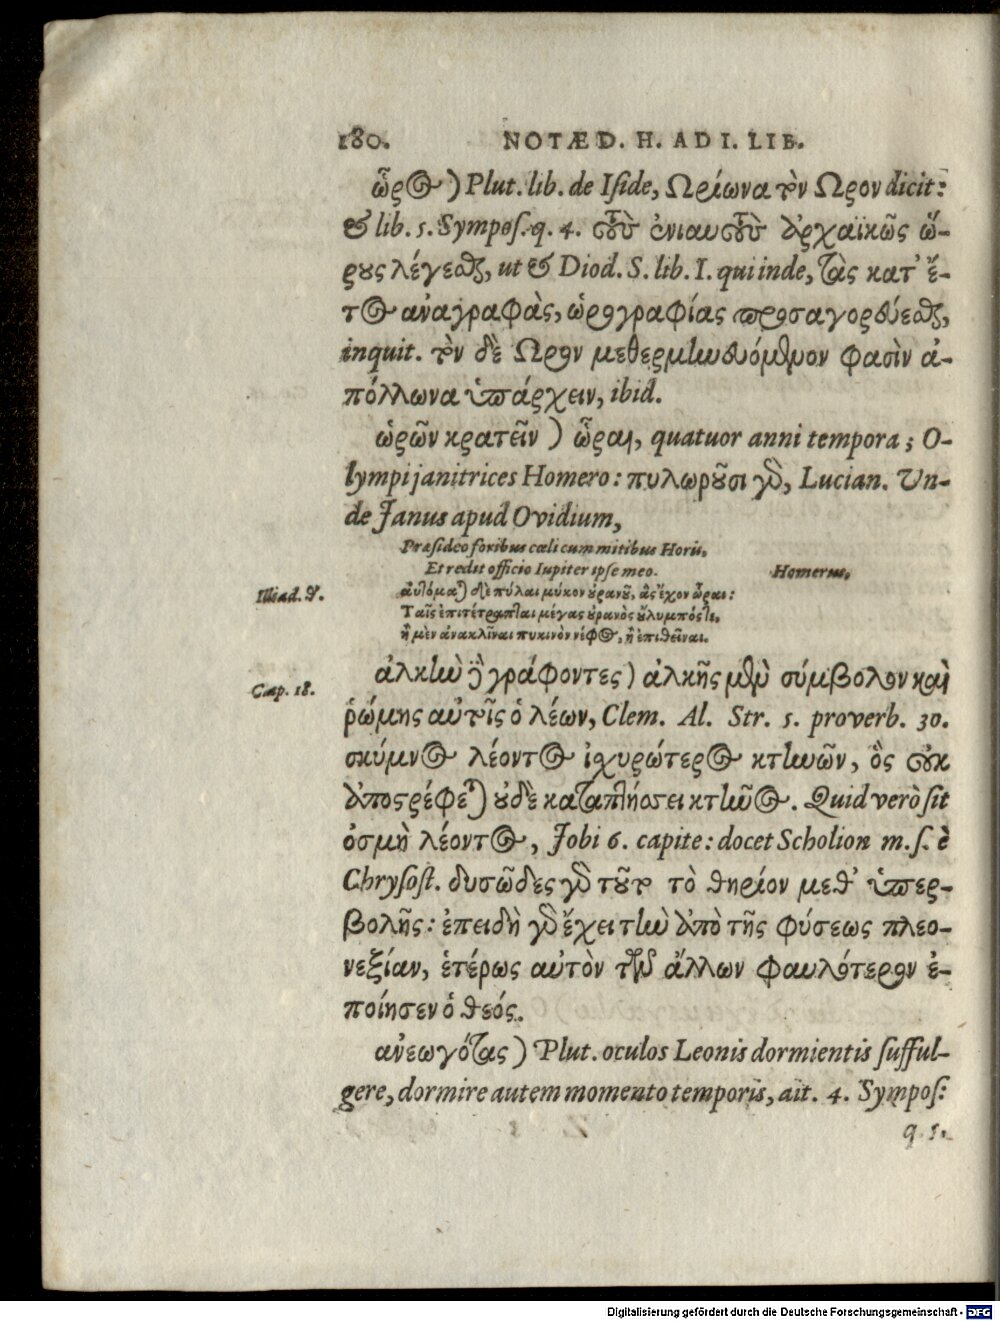 180. NOTÆ D. H. AD I. LIB.
ὧρος) Plut. lib. de Iſide, Ωρίωνα τὸν Ωρον dicit:
& lib. 5. Sympoſ. q. 4. τοῦ ἐνιαυτοῦ ἀρχαϊκῶς ὥ-
ρους λέγεσθαι, ut & Diod. S. lib. I. qui inde, τὰς κατ' ἔ-
τος ἀναγραφὰς, ὡρογραφίας προσαγορεύεσθαι,
inquit. τὸν δὲ Ωρον μεθερμηνευόμενον φασὶν ἀ-
πόλλωνα ὑπάρχειν, ibid.
ὡρῶν κρατεῖν) ὧραι, quatuor anni tempora; O-
lympi janitrices Homero: πυλωροῦσι γὰρ, Lucian. Un-
de Janus apud Ovidium,
Præſideo foribus cœli cum mitibus Horis,
Et redit officio Iupiter ipſe meo. Homerus,
Illiad. θ. αὐτόμαται δὲ πύλαι μύκον οὐρανοῦ, ἃς ἔχον ὧραι:
Ταῖς ἐπιτέτραπται μέγας οὐρανὸς οὔλυμπός τε,
ἢ μὲν ἀνακλῖναι πυκινὸν νέφος, ἢ ἐπιθεῖναι.
Cap. 18. ἀλκὴν ἢ γράφοντες) ἀλκῆς μὲν σύμβολον καὶ
ῥώμης αὐτοῖς ὁ λέων, Clem. Al. Str. 5. proverb. 30.
σκύμνος λέοντος ἰσχυρώτερος κτηνῶν, ὃς οὐκ
ἀποστρέφεται οὐδὲ καταπλήσσει κτῆνος. Quid verò ſit
ὀσμὴ λέοντος, Jobi 6. capite: docet Scholion m. ſ. è
Chryſoſt. δυσῶδες γὰρ τοῦτο τὸ θηρίον μεθ' ὑπερ-
βολῆς: ἐπειδὴ γὰρ ἔχει τὴν ἀπὸ τῆς φύσεως πλεο-
νεξίαν, ἑτέρως αὐτὸν τῶν ἄλλων φαυλότερον ἐ-
ποίησεν ὁ θεός.
ἀνεωγότας) Plut. oculos Leonis dormientis ſufful-
gere, dormire autem momento temporis, ait. 4. Sympoſ:
q. 5.
Digitalisierung gefördert durch die Deutsche Forschungsgemeinschaft - DFG